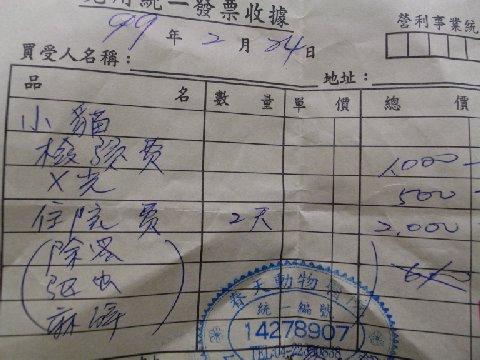 免用統一發票收據
99年2月24日
營利事業統
買受人名稱： 地址：
品名 數量 單價 總價
小貓
檢驗費 1000
X光 500
住院費 2天 2,000
除蚤
驅虫
麻醉
動物
統一編號
14278907